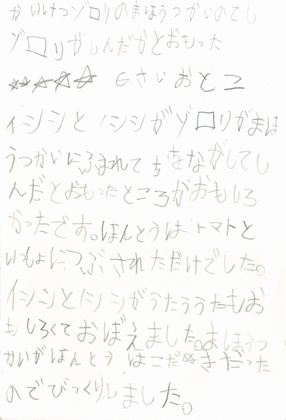 かいけつゾロリのまほうつかいのでし
ゾロリがしんだかとおもった
☆☆☆☆☆ 6さいおとこ
イシシとノシシがゾロリがまほ
うつかいにふまれてちをながしてし
んだとおもったところがおもしろ
かったです。ほんとうはトマトと
いっしょにつぶされただけでした。
イシシとノシシがうたううたもお
もしろくておぼえました。まほうつ
かいがほんとうはこだぬきだった
のでびっくりしました。